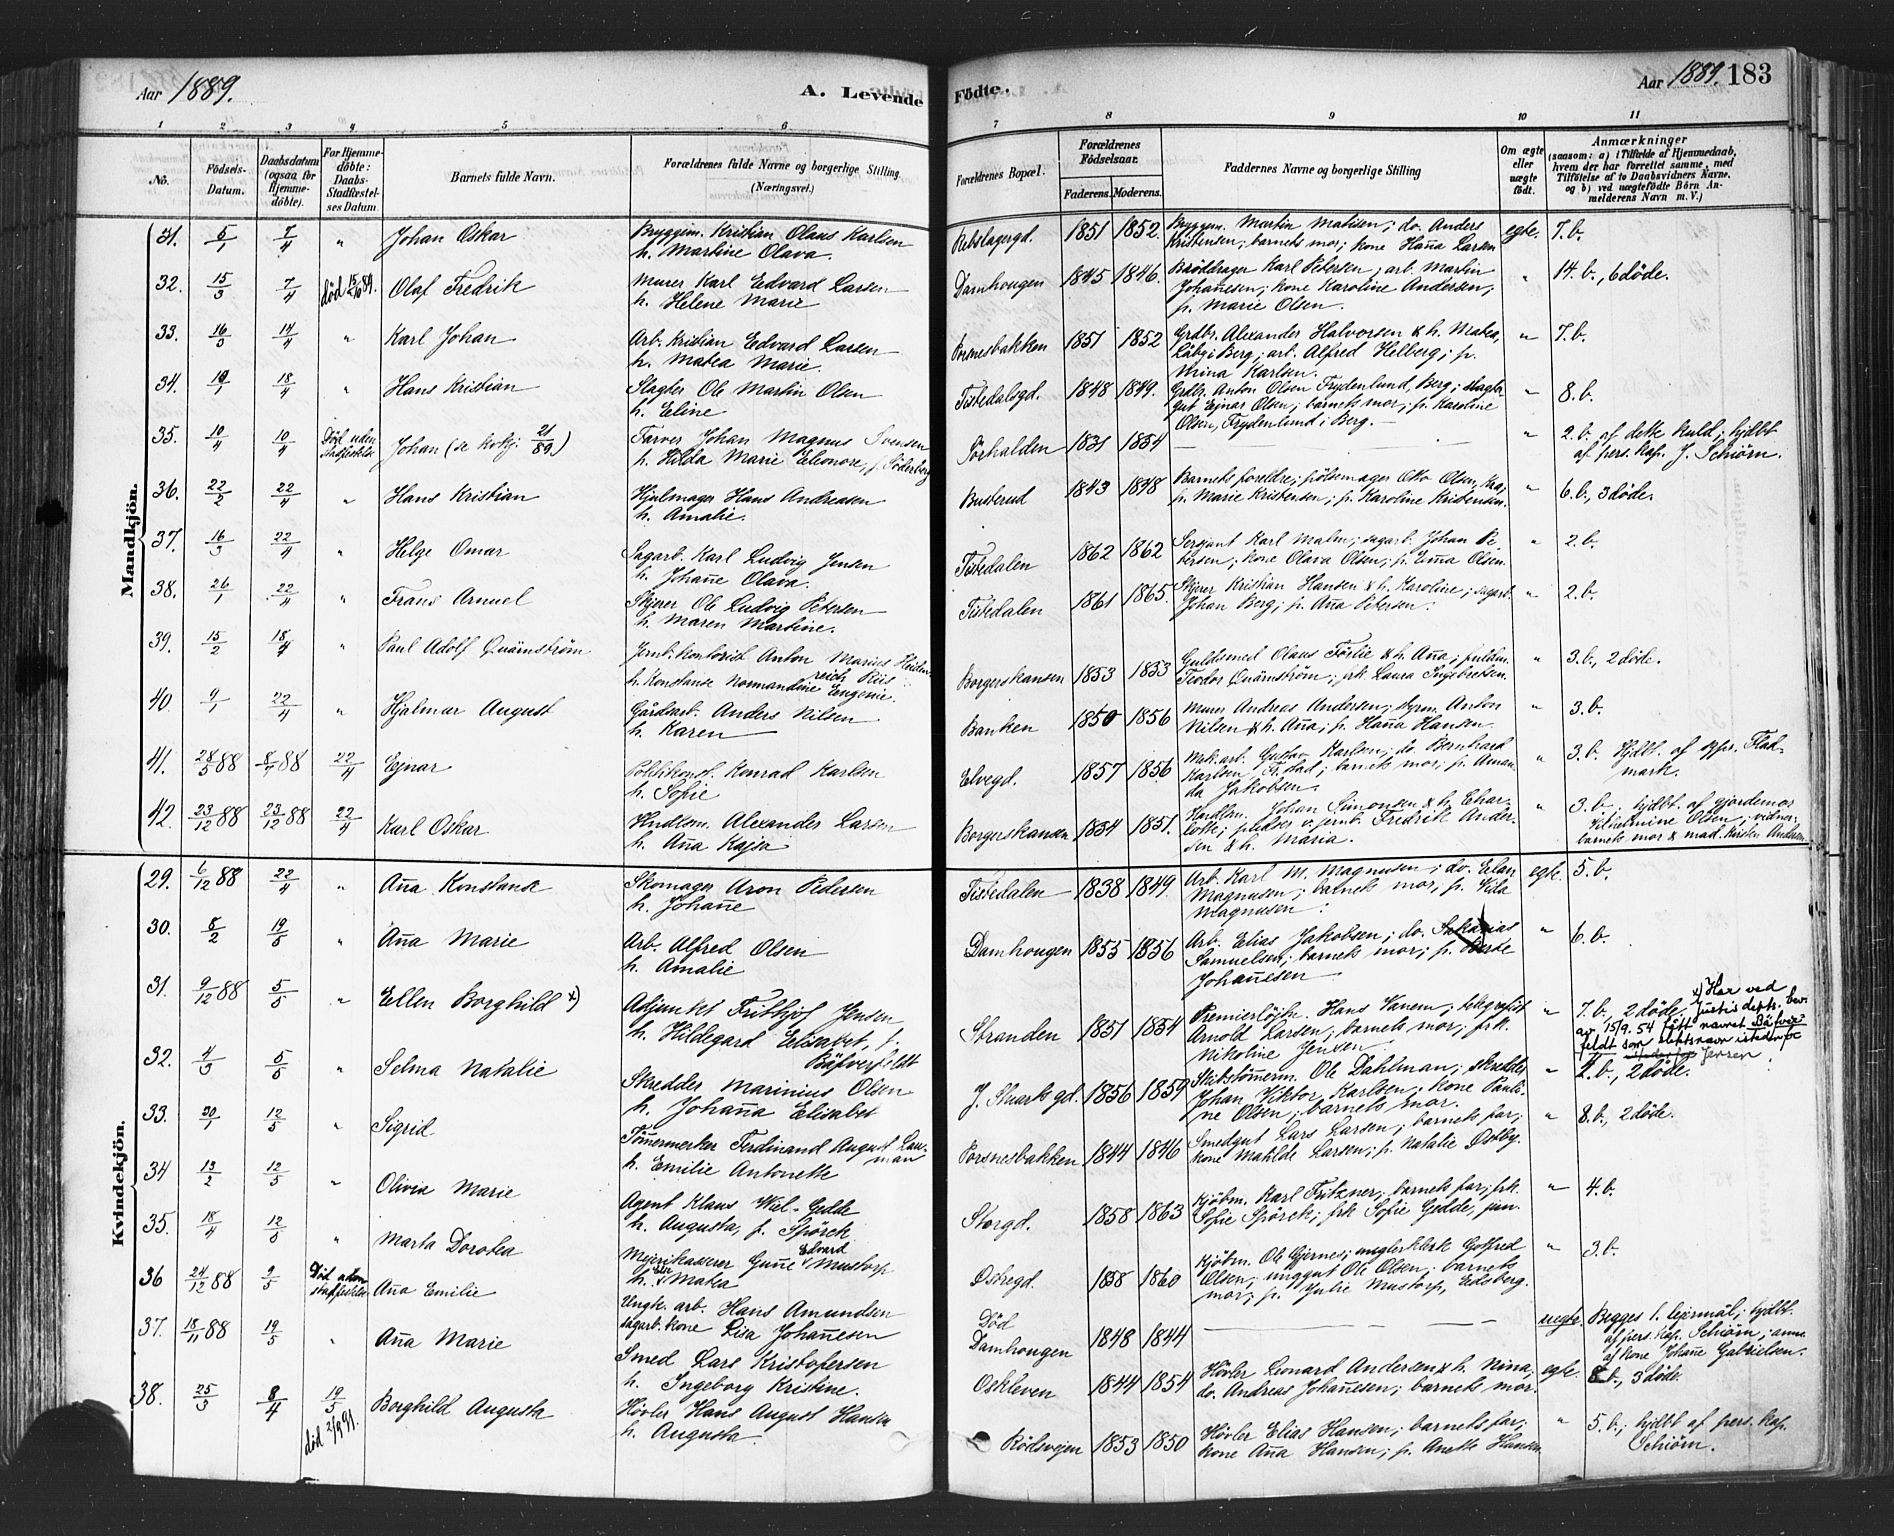 Aar 1889.
A. Levende
Födte.
Aar 1889. 183
1 2 3 4 5 6 7 8 9 10 11
No.
Födsels-Datum.
Daabsdatum (ogsaa for Hjemmedöbte).
For Hjemmedöbte: Daabs-Stadfæstelses Datum.
Barnets fulde Navn.
Forældrenes fulde Navne og borgerlige Stilling (Næringsvei.)
Forældrenes Bopæl.
Forældrenes Födselsaar.
Faderens. Moderens.
Faddernes Navne og borgerlige Stilling
Om ægte eller uægte födt.
Anmærkninger
(saasom: a) i Tilfælde af Hjemmedaab, hvem der har forrettet samme, med Tilföielse af to Daabsvidners Navne, og b) ved uægtefödte Börn Anmelderens Navn m. V.)
Mandkjön.
31. 5/1 7/4 " Johan Oskar Byggem. Kristian Olaus Karlsen
h. Martine Olava.
Rebslagergd. 1851 1852. Byggem. Martin Matisen; do. Anders
Kristensen; barnets mor; kone Hanna Larsen egte. 7. b.
32. 15/3 7/4 död 15/10 89. Olaf Fredrik Murer Karl Edvard Larsen
h. Helene Marie
Damhougen 1845 1846. Bröddrager Karl Petersen; arb. Martin
Johannesen; kone Karoline Andersen;
p. Marie Olsen. " 14. b., 6 döde.
33. 16/3 14/4 " Karl Johan Arb. Kristian Edvard Larsen
h. Matea Marie.
Porsnesbakken 1851 1852 Grdbr. Alexander Halvorsen & h. Matea,
i Berg; arb. Alfred Helberg; p.
Mina Karlsen. " 7. b.
34. 19/1 18/4 " Hans Kristian Slagter Ole Martin Olsen
h. Eline
Tistedalsgd. 1848 1849. Grdbr. Anton Olsen Frydenlund, Berg; slagter
gut Ejnar Olsen; barnets mor; p. Karoline
Olsen, Frydenlund i Berg. " 8. b.
35. 10/4 10/4 Död uden Stadfestelse Johan (se kirkj. 21/89.) Farver Johan Magnus Svensen
h. Hilda Marie Eleonore, f. Söderberg
Sörhalden 1831 1854 " 2. b. af dette kuld; hjdbt
af pers. kap. J. Schiörn.
36. 22/2 22/4 " Hans Kristian Hjulmager Hans Andreasen
h. Amalie.
Busterud 1843 1848 Barnets foreldre; pölsemager Otto Olsen, Kra,
p. Marie Kristensen; p. Karoline Kristensen. " 6. b., 3 döde.
37. 16/3 22/4 " Helge Omar Sagarb. Karl Ludvig Jensen
h. Johanne Olava.
Tistedalen 1862 1862 Sersjant Karl Malm; sagarb. Johan Petersen;
kone Olava Olsen; p. Emma Olsen. " 2. b.
38. 26/1 22/4 " Frans Arnuel Skjerer Ole Ludvig Petersen
h. Maren Martine.
Tistedalen 1861 1865. Skjerer Kristian Hansen & h. Karoline; sagarb.
Johan Berg; p. Anna Petersen. " 2. b.
39. 15/2 18/4 " Paul Adolf Quärnström Jernb. kontorist Anton Marius Heidenreich Riis
h. Konstanse Normandine Eugenie.
Borgerskansen 1853 1853 Guldsmed Olaus Förlie & h. Anna; fuldm.
Teodor Quärnström; frk. Laura Ingebretsen. " 3. b., 2 döde.
40. 9/1 22/4 " Hjalmar August Gårdsarb. Anders Nilsen
h. Karen
Banken 1850 1856 Murer Andreas Andersen; styrm. Anton
Nilsen & h. Anna; p. Hanna Hansen. " 3. b.
41. 28/5 88 8/7 88 22/4 Ejnar Politikonst. Konrad Karlsen
h. Sofie
Elvegd. 1857 1856 Mek. arb. Gustav Karlsen; do. Bernhard
Karlsen, Fr.stad; barnets mor; p. Amanda
Jakobsen. " 3. b. Hjdbt. af sgpr. Fladmark.
42. 23/12 88 23/12 88 22/4 Karl Oskar Hndlsm. Alexander Larsen
h. Anna Kajsa
Borgerskansen 1854 1851. Handlsm. Johan Simonsen & h. Charlotte;
pudser v. jernb. Fredrik Andersen
& h. Maria. " 3. b., hjdbt. af gjordemor
Vilhelmine Olsen; vidner
barnets mor & mad. Kirsten Andersen.
Kvindekjön.
29. 6/12 88 22/4 " Anna Konstanse Skomager Aron Pedersen
h. Johanne
Tistedalen 1838 1849. Arb. Karl M. Magnusen; do. Elan
Magnusen; barnets mor, p. Hilda
Magnusen. egte. 5. b.
30. 8/2 19/5 " Anna Marie Arb. Alfred Olsen
h. Amalie
Damhougen 1855 1856 Arb. Elias Jakobsen; do. Sakarias
Samuelsen; barnets mor; p. Berte
Johannesen " 6. b.
31. 9/12 88 5/5 " Ellen Borghild x) Adjunkt Frithjof Jensen
h. Hildegard Elisabet, f.
Bäfverfeldt
Stranden 1851 1854 Premierlöjtn. Hans Vanem; telegrafist
Arnold Larsen; barnets mor; frk.
Nikoline Jensen " 7. b., 2 döde. x) Har ved
Justisdepts. bev.
av 15/9. 54 fått navnet Bäfverfeldt
som slektsnavn istedenfor
Jensen.
32. 4/3 5/5 " Selma Natalie Skredder Marinius Olsen
h. Johanna Elisabet
J. Stuarts gd. 1856 1859 Skibstömmerm. Ole Dahlman; skredder
Johan Viktor Karlsen; kone Pauline
Olsen; barnets mor. " 4. b., 2 döde.
33. 20/1 12/5 " Sigrid Tömmermerker Ferdinand August Lauman
h. Emilie Antonette
Porsnesbakken 1844 1846 Smedgut Lars Larsen; barnets far;
kone Matilde Larsen; p. Natalie Östby. " 8. b., 2 döde.
34 13/2 12/5 " Olivia Marie Agent Klaus Wiel-Gedde
h. Augusta, f. Spörck
Storgd. 1858 1863 Kjöbm. Karl Fritzner; barnets far; frk.
Sofie Spörck; frk Sofie Gedde, jun. " 4. b.
35. 18/4 12/5 " Marta Dorotea Mejerikasserer Gunne Edvard Mustorp
h. Matea
Östregd. 1858 1860 Kjöbm. Ole Gjernes; Gotfred
Olsen; unggut Ole Olsen; barnets
mor; p. Julie Mustorp, Edsberg. " 3. b.
36 24/12 88 9/5 Död uden stadfestelse Anna Emilie Ungk. arb. Hans Amundsen
sagarb. kone Lisa Johannesen
Död
Damhougen 1848 1844 uegte. Begges 1. lejermål; hjdbt.
af pers. kap. Schiörn; anm.
af kone Johanne Gabrielsen.
37. 18/11 88 19/5 " Anna Marie Smed Lars Kristofersen
h. Ingeborg Kristine.
Oskleven 1844 1854 Hövler Leonard Andersen & h. Nina;
do. Andreas Johannesen; barnets mor. egte. 8 b., 3 döde.
38. 25/3 8/4 19/5 död 2/9 91. Borghild Augusta Hövler Hans August Hansen
h. Augusta.
Rödsvejen 1853 1850 Hövler Elias Hansen; barnets far;
kone Anna Hansen; p. Anette Hansen " 5. b.; hjdbt af pers. kap.
Schiörn.